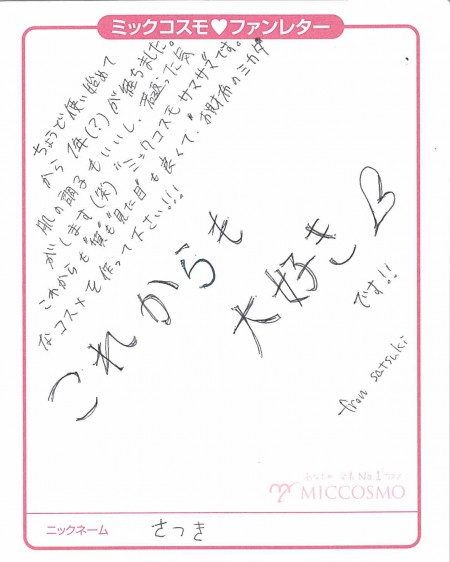 ミックコスモ♥ファンレター
ちょうど使い始めて
から1年(?)が経ちました。
肌の調子もいいし、若返った気
がします(笑)"ミックコスモサマサマ"です。
これからも"質"も"見た目"も良くて、"お財布のミカタ"
なコスメを作って下さい!!!
これからも
大好き♡
です!!
from satsuki
MICCOSMO
ニックネーム さつき